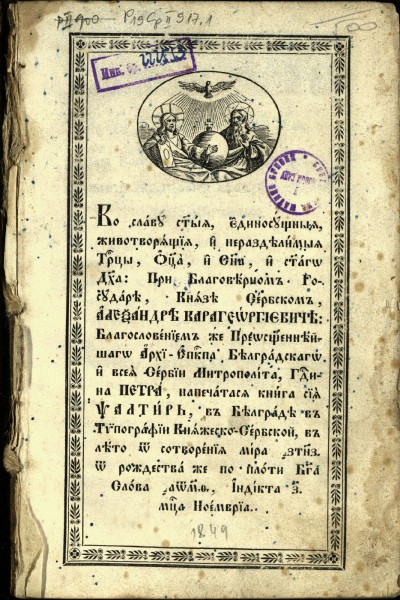 Р19Ср II 917.1
Инв. бр.
Во славу ст҃ыѧ, Єдиносꙋщныѧ,
животворѧщіѧ, и҆ нераздѣлимыѧ
Трⷪ҇цы, Ѻ҆ц҃а, и҆ Сн҃а, и҆ ст҃агѡ
Дх҃а: При Благовѣрномъ Го-
сꙋдарѣ, Кнѧзѣ Сербскомъ,
АЛЕѮАНДРѢ КАРАГЕѠРГІЕВИЧѢ:
Благословенїемъ же Преѡсщеннѣй-
шагѡ А҆рхї-Єпⷭ҇кпа Бѣлградскагѡ,
и҆ всеѧ Сербїи Митрополіта, Гдⷭ҇и-
на ПЕТРА, напечатасѧ книга сїѧ
ѰАЛТИРЬ, въ Бѣлградѣ въ
Тѵпографїи Кнѧжеско-Сербской, въ
лѣто ѿ сотворенїѧ міра ҂зтн҃з.
ѿ рождества же по плоти Бг҃а
Слова ҂аѡм҃ѳ, Індікта з҃.
мцⷭ҇а Ноемврїа.
1849